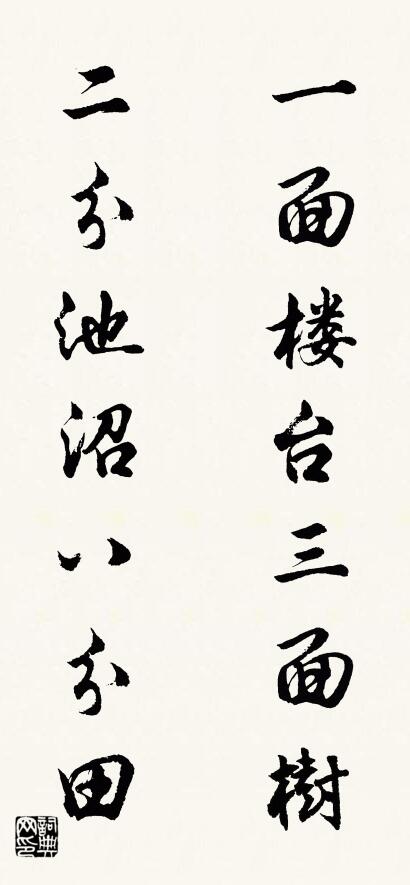 一面楼台三面樹
二分池沼八分田
詞典网印